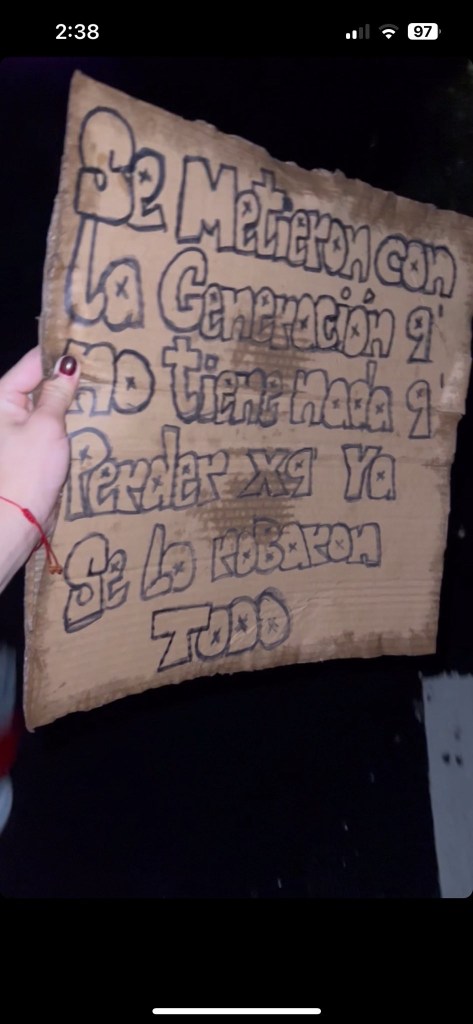 2:38
97
Se Metieron con
La Generación q'
no tiene nada q'
Perder xq Ya
Se Lo roBaron
TODO